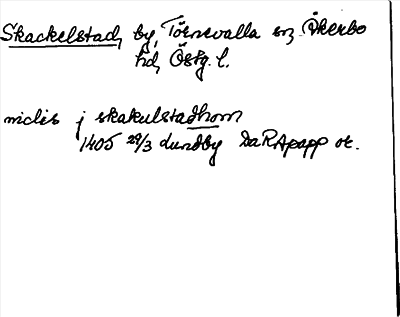 Skackelstad, by, Törnevalla sn, Åkerbo
hd, Östg. l.
niclis j skakulstadhom
1405 29/3 Lundby DaRApapp or.